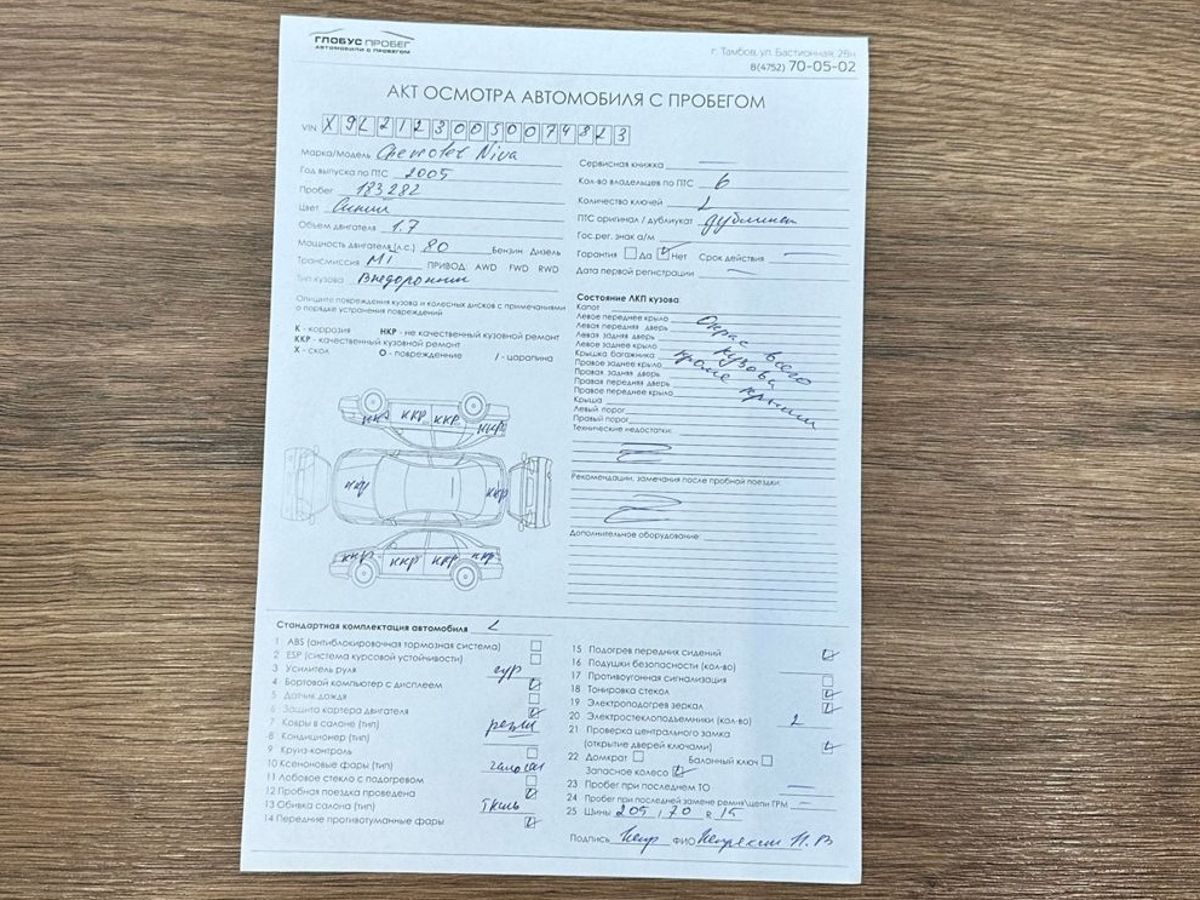 ГЛОБУС ПРОБЕГ
АВТОМОБИЛИ С ПРОБЕГОМ
г. Тамбов, ул. Бастионная, 28н
8(4752) 70-05-02
АКТ ОСМОТРА АВТОМОБИЛЯ С ПРОБЕГОМ
VIN X9L21230050074823
Марка/Модель Chevrolet Niva
Год выпуска по ПТС 2005
Пробег 183282
Цвет Синий
Объем двигателя 1.7
Мощность двигателя (л.с.) 80 Бензин Дизель
Трансмиссия МТ ПРИВОД: AWD FWD RWD
Тип кузова Внедорожник
Опишите повреждения кузова и колесных дисков с примечаниями
о порядке устранения повреждений
К - коррозия НКР - не качественный кузовной ремонт
ККР - качественный кузовной ремонт
Х - скол О - повреждение / - царапина
ККР ККР ККР ККР
ККР ККР
ККР ККР ККР ККР
Сервисная книжка —
Кол-во владельцев по ПТС 6
Количество ключей 2
ПТС оригинал / дубликат дубликат
Гос.рег. знак а/м
Гарантия Да Нет Срок действия —
Дата первой регистрации —
Состояние ЛКП кузова:
Капот
Левое переднее крыло
Левая передняя дверь
Левая задняя дверь
Левое заднее крыло
Крышка багажника
Правое заднее крыло
Правая задняя дверь
Правая передняя дверь
Правое переднее крыло
Крыша
Левый порог
Правый порог
Окрас всего
кузова
кроме крыши
Технические недостатки:
Рекомендации, замечания после пробной поездки:
Дополнительное оборудование:
Стандартная комплектация автомобиля L
1 ABS (антиблокировочная тормозная система)
2 ESP (система курсовой устойчивости)
3 Усилитель руля гур
4 Бортовой компьютер с дисплеем
5 Датчик дождя
6 Защита картера двигателя
7 Ковры в салоне (тип) резин
8 Кондиционер (тип)
9 Круиз-контроль
10 Ксеноновые фары (тип) галоген
11 Лобовое стекло с подогревом
12 Пробная поездка проведена
13 Обивка салона (тип) ткань
14 Передние противотуманные фары
15 Подогрев передних сидений
16 Подушки безопасности (кол-во)
17 Противоугонная сигнализация
18 Тонировка стекол
19 Электроподогрев зеркал
20 Электростеклоподъемники (кол-во) 2
21 Проверка центрального замка
(открытие дверей ключами)
22 Домкрат Баланный ключ
Запасное колесо
23 Пробег при последнем ТО —
24 Пробег при последней замене ремня\цепи ГРМ —
25 Шины 205 / 70 R 15
Подпись ФИО